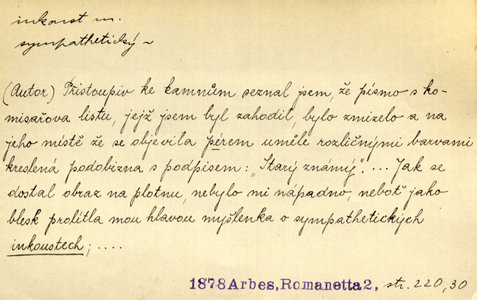 inkoust m.
sympathetický ~
(Autor) Přistoupiv ke kamnům seznal jsem, že písmo s ko-
misařova listu, jejž jsem byl zahodil, bylo zmizelo a na
jeho místě že se objevila pérem uměle rozličnými barvami
kreslená podobizna s podpisem: „Starý známý“.... Jak se
dostal obraz na plotnu, nebylo mi nápadno, neboť jako
blesk prolítla mou hlavou myšlenka o sympathetických
inkoustech; ....
1878 Arbes, Romanetta 2, str. 220, 30